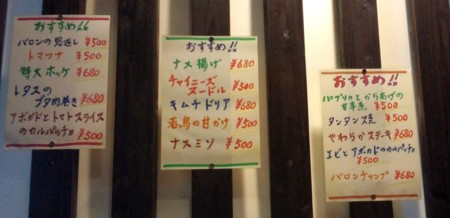 おすすめ!!
バロンの思返し ¥500
トマツナ ¥500
特大ホッケ ¥680
レタスの
ブタ肉巻き ¥680
アボガドとトマトスライス
のカルパッチョ
¥500
おすすめ!!
ナス揚げ ¥680
チャイニーズ
ヌードル ¥500
キムチドリア ¥680
若鳥の甘かけ ¥500
ナスミソ ¥500
おすすめ!!
パプリカとから揚げの
甘辛煮 ¥500
タンタン焼 ¥500
やわらかステーキ ¥680
エビとアボカドのカルパッチョ
¥500
バロンチャンプ ¥680